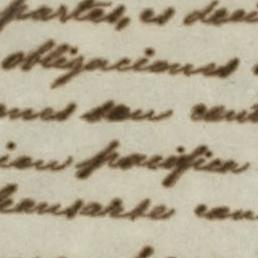 partes, es deci
obligaciones
ones son cont
ion pacifica
transarse con